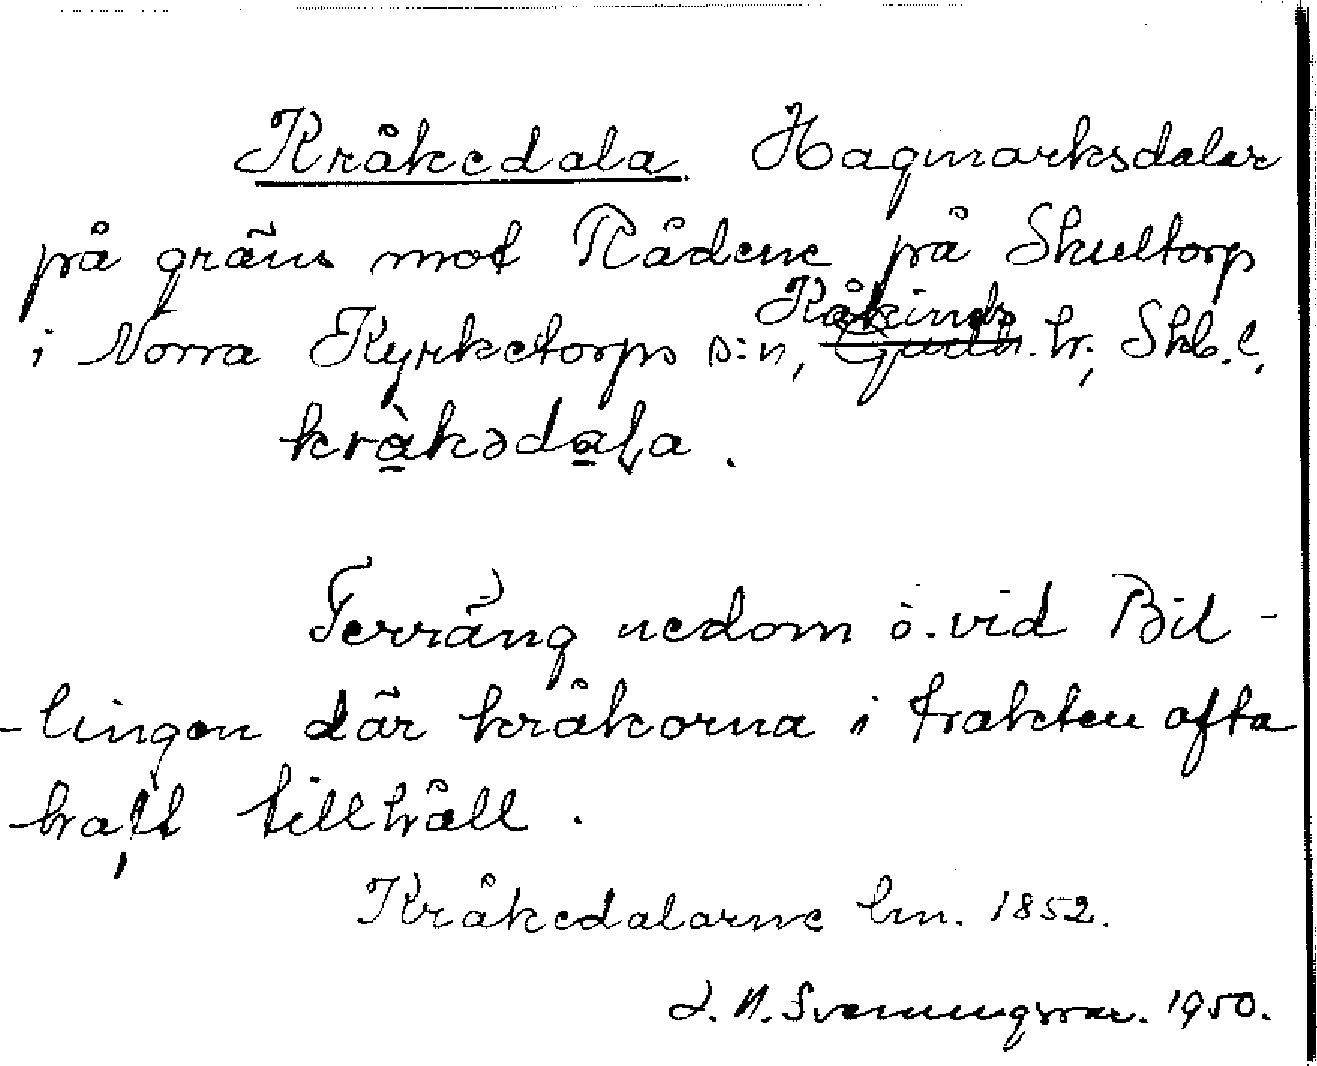 Kråkedala. Hagmarksdalar
på gräns mot Rådene på Skultorp
Kåkinds
i Norra Kyrketorps s:n, Gudh. hr, Skb. l.
kràkədala.
Terräng nedom o. vid Bil-
-lingen där kråkorna i trakten ofta
haft tillhåll.
Kråkedalarne lm. 1852.
J. N. Svenningsson. 1950.